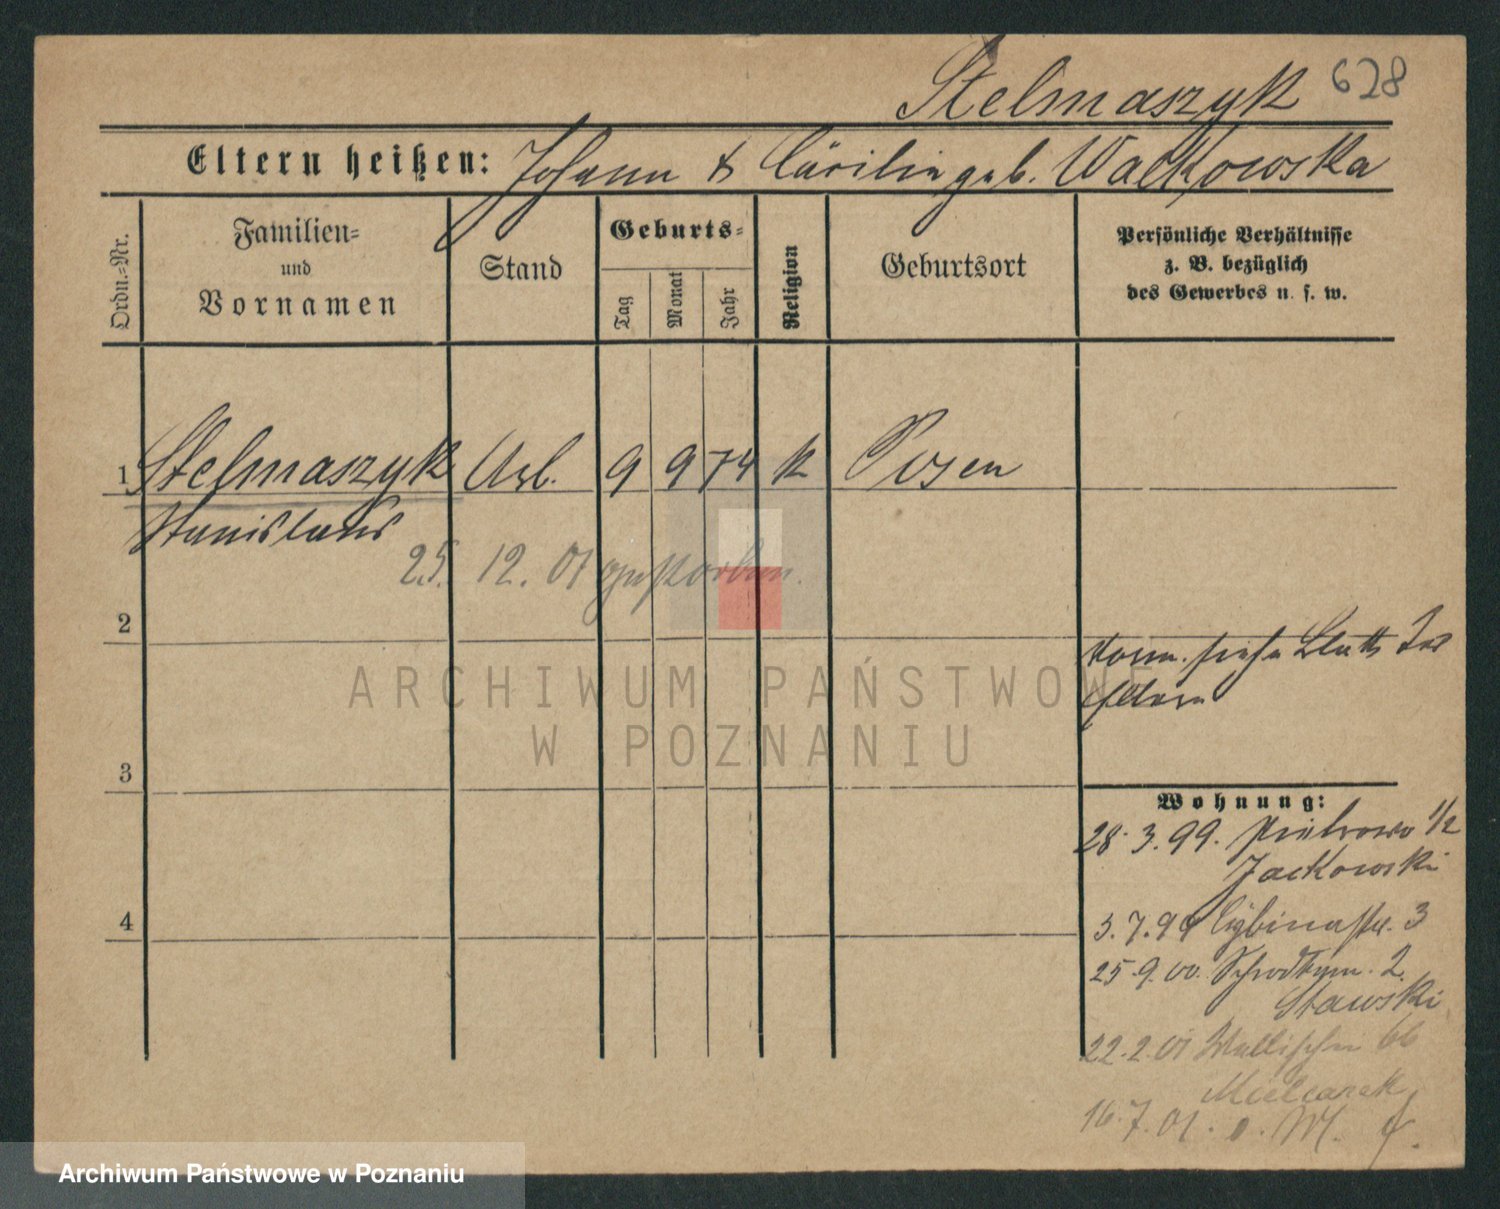 Stelmaszyk 628
Eltern heißen: Johann & Cäcilie geb. Walkowska
Ordn.=Nr.
Familien=
und
Vornamen
Stand
Geburts=
Tag
Monat
Jahr
Religion
Geburtsort
Persönliche Verhältnisse
z. B. bezüglich
des Gewerbes u. s. w.
1 Stelmaszyk Arb. 9 9 74 K Posen
Stanislaus
25. 12. 01 gestorben.
2
siehe Blatt der
Eltern
3
Wohnung:
28. 3. 99. Piotrowo 1/2
Jackowski
4
3. 7. 99 Cybinastr. 3
25. 9. 00. Schrodkam. 2.
Stawski
22. 2. 01 Wallischei 66
Mielcarek
16. 7. 01. o. M.
ARCHIWUM PAŃSTWOWE
W POZNANIU
Archiwum Państwowe w Poznaniu